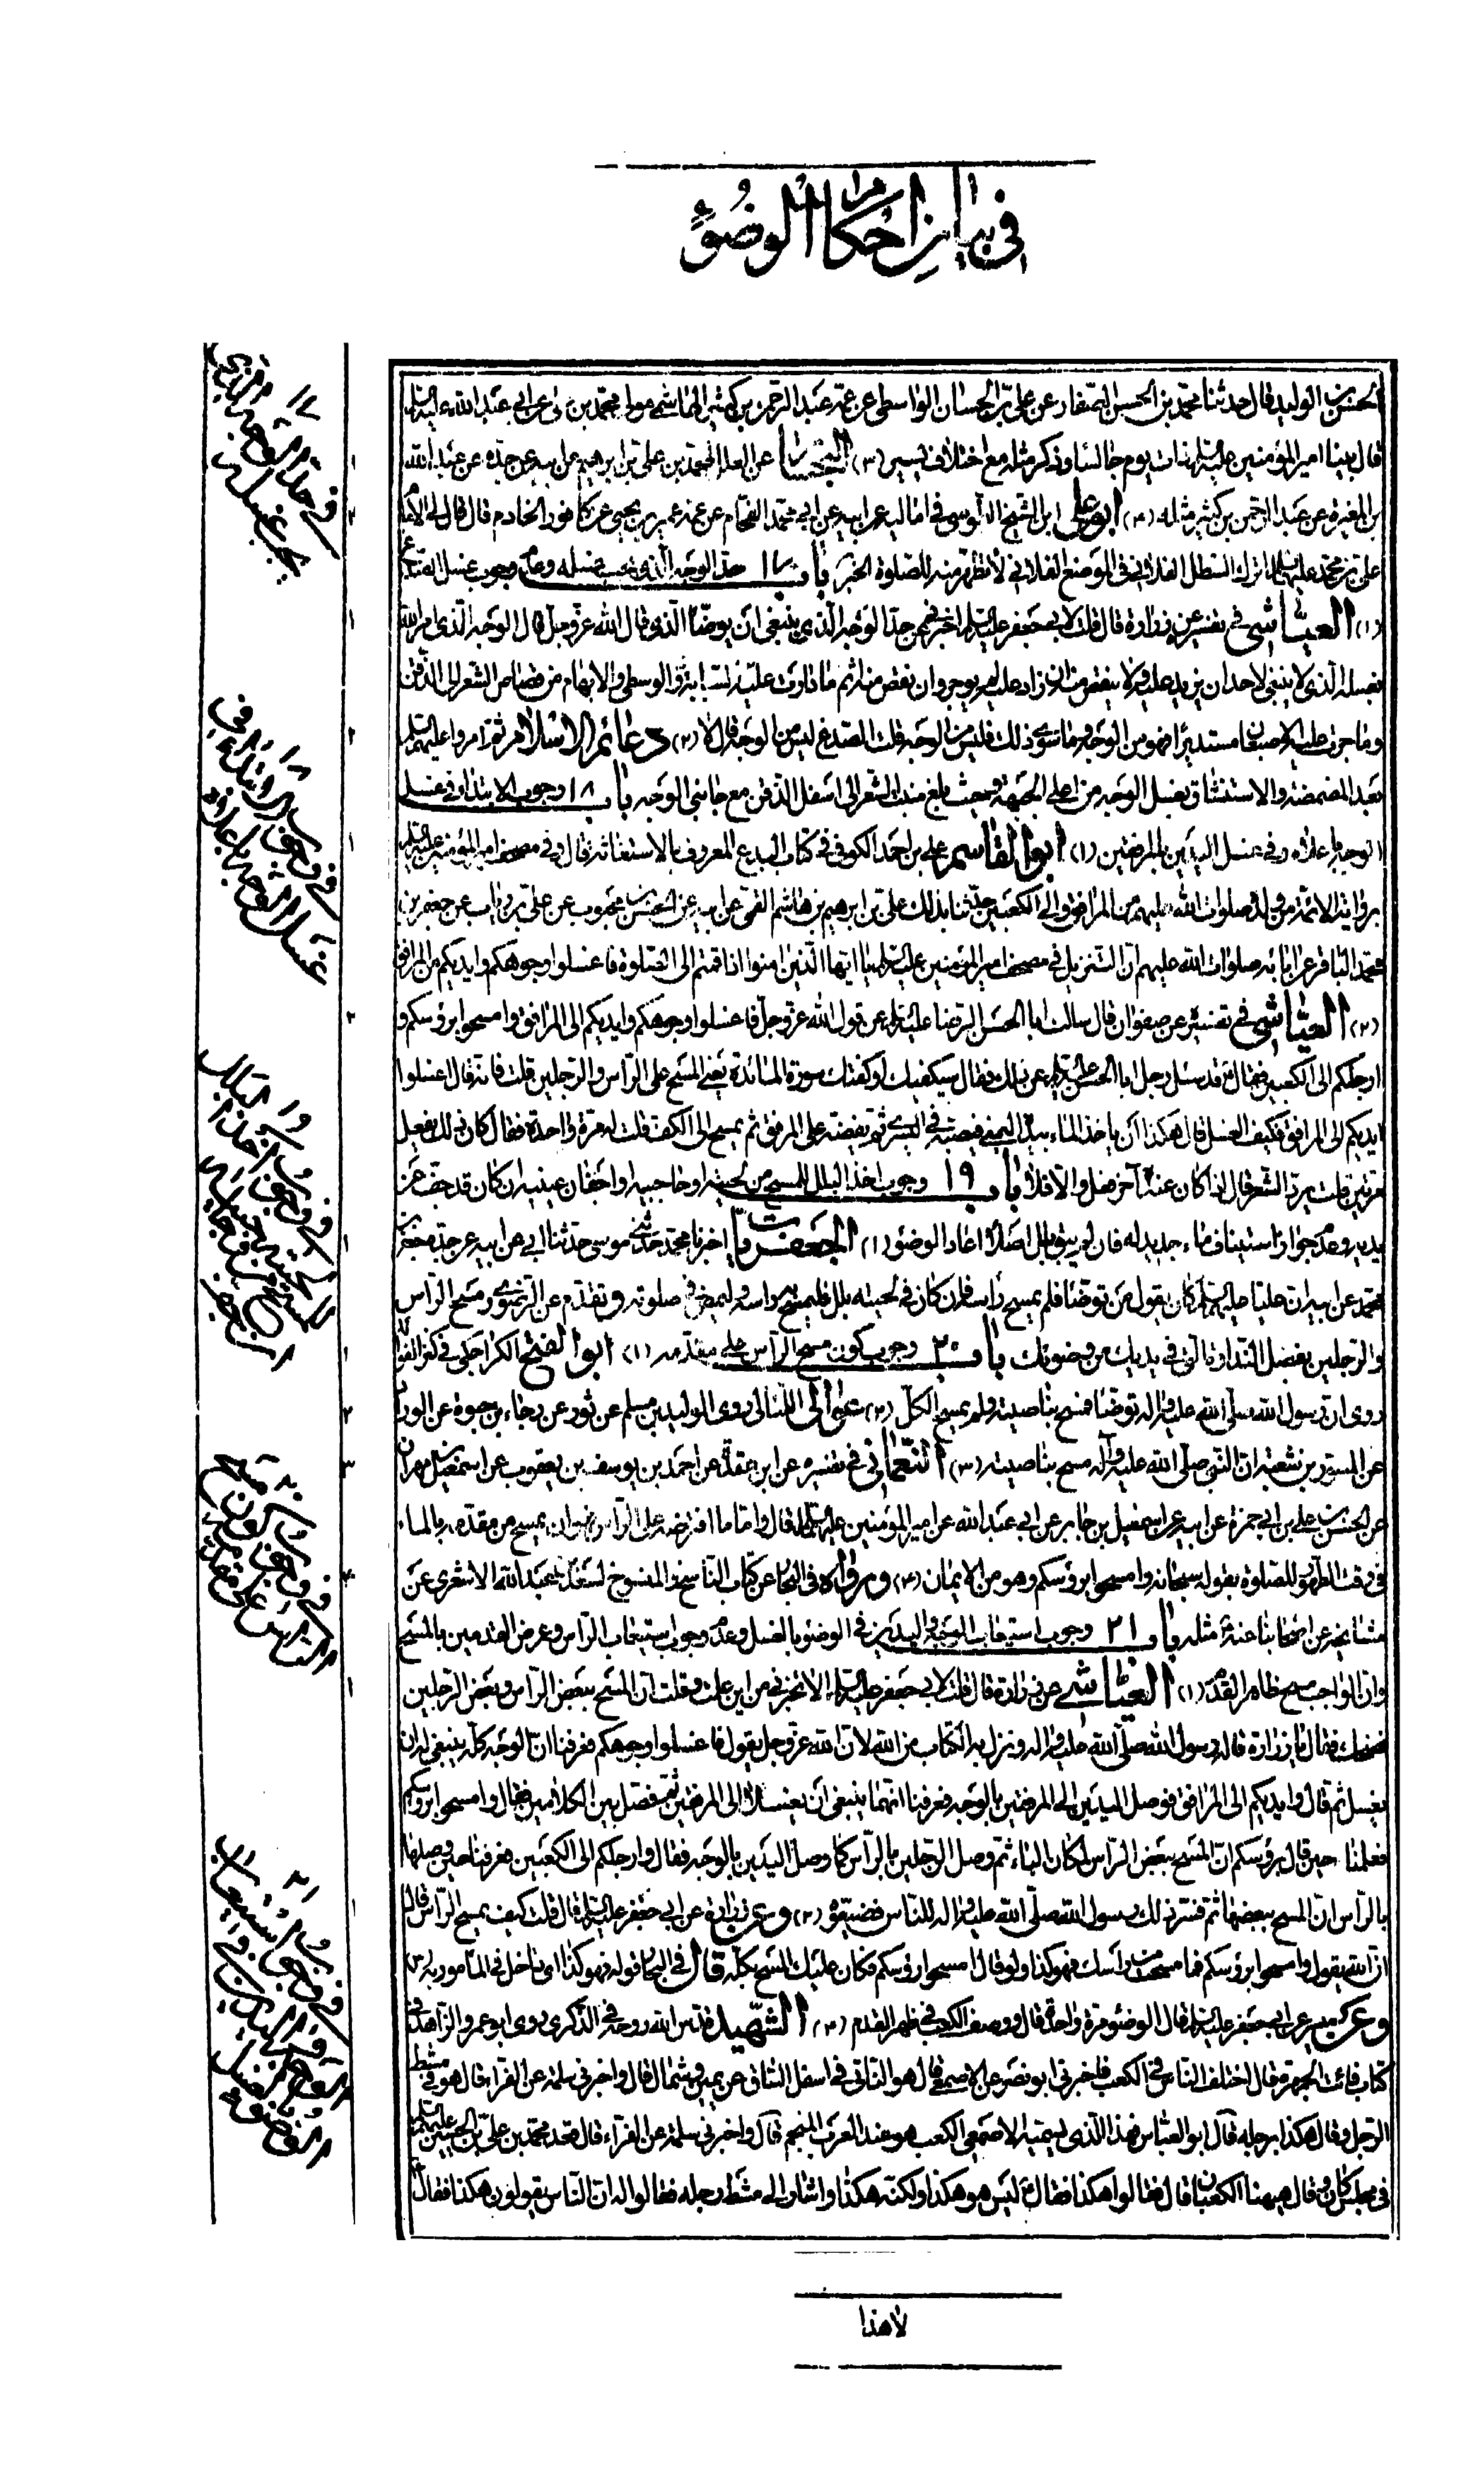 في بيان احكام الوضوء
الحسن بن الوليد قال حدثنا محمد بن الحسن الصفار عن علي بن الحسان الواسطي عن عمه عبد الرحمن بن كثير الهاشمي مولى محمد بن علي عن ابي عبد الله عليه السلم
قال بينا امير المؤمنين عليه السلم ذات يوم جالسا وذكر مثله مع اختلاف يسير (٣) البحار عن العلل لمحمد بن علي بن ابرهيم عن ابيه عن جده عن عبد الله
بن المغيرة عن عبد الرحمن بن كثير مثله (٤) ابو علي ابن الشيخ الطوسي في اماليه عن ابيه عن ابي محمد الفحام عن عمه عمر بن يحيى عن كافور الخادم قال قال لي الامام
علي بن محمد عليهما السلم اترك السطل الفلاني في الموضع الفلاني لاتطهر منه للصلوة الخبر باب ١٧ حد الوجه الذي يجب غسله وعدم وجوب غسل الصدغ
(١) العياشي في تفسيره عن زرارة قال قلت لابي جعفر عليه السلم اخبرني عن حد الوجه الذي ينبغي ان يوضأ الذي قال الله عز وجل قال الوجه الذي امر الله
بغسله الذي لا ينبغي لاحد ان يزيد عليه ولا ينقص منه ان زاد عليه لم يوجر وان نقص منه اثم ما دارت عليه السبابة والوسطى والابهام من قصاص الشعر الى الذقن
وما جرت عليه الاصبعان مستديرا فهو من الوجه وما سوى ذلك فليس من الوجه قلت الصدغ ليس من الوجه قال لا (٢) دعائم الاسلام ثم امروا عليهم السلم
بعد المضمضة والاستنشاق بغسل الوجه من اعلى الجبهة وحيث بلغ منبت الشعر الى اسفل الذقن مع جانبي الوجه باب ١٨ وجوب الابتداء في غسل
الوجه باعلاه وفي غسل اليدين بالمرفقين (١) ابو القاسم علي بن احمد الكوفي في كتاب البدع المعروف بالاستغاثة قال وفي مصحف امير المؤمنين عليه السلم
برواية الائمة من ولده صلوات الله عليهم من المرافق والى الكعبين حدثنا بذلك علي بن ابرهيم بن هاشم القمي عن ابيه عن الحسن بن محبوب عن علي بن رئاب عن جعفر بن
محمد الباقر عن ابائه صلوات الله عليهم ان التنزيل في مصحف امير المؤمنين عليه السلم يا ايها الذين امنوا اذا قمتم الى الصلوة فاغسلوا وجوهكم وايديكم من المرافق
(٢) العياشي في تفسيره عن صفوان قال سالت ابا الحسن الرضا عليه السلم عن قول الله عز وجل فاغسلوا وجوهكم وايديكم الى المرافق وامسحوا برؤسكم و
ارجلكم الى الكعبين فقال قد سئل رجل ابا الحسن عليه السلم عن ذلك فقال سيكفيك او كفتك سورة المائدة يعني المسح على الرأس والرجلين قلت فانه قال اغسلوا
ايديكم الى المرافق فكيف الغسل قال هكذا ان ياخذ الماء بيده اليمنى فيصبه في اليسرى ثم يفضه على المرفق ثم يمسح الى الكف قلت له مرة واحدة فقال كان ذلك يفعل
مرتين قلت يرد الشعر قال اذا كان عنده آخر فعل والا فلا باب ١٩ وجوب اخذ البلل للمسح من لحيته او حاجبيه او اجفان عينيه ان كان قد جف عن
يديه وعدم جواز استيناف ماء جديد له فان لم يبق بلل اصلا اعاد الوضوء (١) الجعفريات اخبرنا محمد حدثني موسى حدثنا ابي عن ابيه عن جده جعفر بن
محمد عن ابيه ان عليا عليه السلم كان يقول من توضأ فلم يمسح رأسه فان كان في لحيته بلل فليمسح به رأسه وليمض في صلوته وتقدم عن الرضوي ومسح الرأس
والرجلين بفضل النداوة التي في يديك من وضوئك باب ٢٠ وجوب كون مسح الرأس على مقدمه (١) ابو الفتح الكراجكي في كنز الفوائد
روى ان رسول الله صلى الله عليه واله توضأ فمسح بناصيته ولم يمسح الكل (٢) عوالي اللئالي روى الوليد بن مسلم عن ثور عن رجاء بن حيوة عن الوراد
عن المستورد بن شعبة ان النبي صلى الله عليه وآله مسح بناصيته (٣) النعماني في تفسيره عن ابن عقدة عن احمد بن يوسف بن يعقوب عن اسمعيل بن مهران
عن الحسن بن علي بن ابي حمزة عن ابيه عن اسمعيل بن جابر عن ابي عبد الله عن امير المؤمنين عليه السلم قال واما ما افترضه على الرأس فهو ان يمسح من مقدمه بالماء
في وقت الطهور للصلوة بقوله سبحانه وامسحوا برؤسكم وهو من الايمان (٤) ورواه في البحار عن كتاب الناسخ والمنسوخ لسعد بن عبد الله الاشعري عن
مشايخه عن اصحابنا عنه مثله باب ٢١ وجوب استيعاب الوجه واليدين في الوضوء بالغسل وعدم وجوب استيعاب الرأس وعرض القدمين بالمسح
وان الواجب مسح ظاهر القدم (١) العياشي عن زرارة قال قلت لابي جعفر عليه السلم الا تخبرني من اين علمت وقلت ان المسح ببعض الرأس وبعض الرجلين
فضحك فقال يا زرارة قاله رسول الله صلى الله عليه واله ونزل به الكتاب من الله لان الله عز وجل يقول فاغسلوا وجوهكم فعرفنا ان الوجه كله ينبغي له ان
يغسل ثم قال وايديكم الى المرافق فوصل اليدين الى المرفقين بالوجه فعرفنا انهما ينبغي ان يغسلا الى المرفقين ثم فصل بين الكلامين فقال وامسحوا برؤسكم
فعلمنا حين قال برؤسكم ان المسح ببعض الرأس لمكان الباء ثم وصل الرجلين بالرأس كما وصل اليدين بالوجه فقال وارجلكم الى الكعبين فعرفنا حين وصلها
بالرأس ان المسح ببعضها ثم فسر ذلك رسول الله صلى الله عليه واله للناس فضيعوه (٢) وعن زرارة عن ابي جعفر عليه السلم قال قلت كيف يمسح الرأس قال
ان الله يقول وامسحوا برؤسكم فما مسحت من رأسك فهو كذا ولو قال امسحوا رؤسكم فكان عليك المسح بكله قال في البحار قوله فهو كذا اي داخل في المأمور به (٣)
وعن ميسر عن ابي جعفر عليه السلم قال الوضوء مرة واحدة قال ووصف الكعب في ظهر القدم (٤) الشهيد قدس الله روحه في الذكرى روى ابو عمرو الزاهد في
كتاب فائت الجمهرة قال اختلف الناس في الكعب فاخبرني ابو نصر عن الاصمعي قال هو الناتي في اسفل الساق عن يمين وشمال قال واخبرني سلمة عن الفراء قال هو في مشط
الرجل وقال هكذا برجله قال ابو العباس فهذا الذي يسميه الاصمعي الكعب هو عند العرب المنجم قال واخبرني سلمة عن الفراء قال قعد محمد بن علي بن الحسين عليهم السلم
في مجلس كان وقال هيهنا الكعبان قال فقالوا هكذا فقال ليس هو هكذا ولكنه هكذا واشار الى مشط رجله فقالوا له ان الناس يقولون هكذا فقال
لا هذا
١٧
في حد الوجه الذي
يجب غسله
١٨
في وجوب الابتداء في
غسل الوجه باعلاه
١٩
في وجوب اخذ البلل
للمسح من لحيته
٢٠
في وجوب كون مسح
الرأس على مقدمه
٢١
في وجوب استيعاب
الوجه واليدين في
الوضوء بالغسل